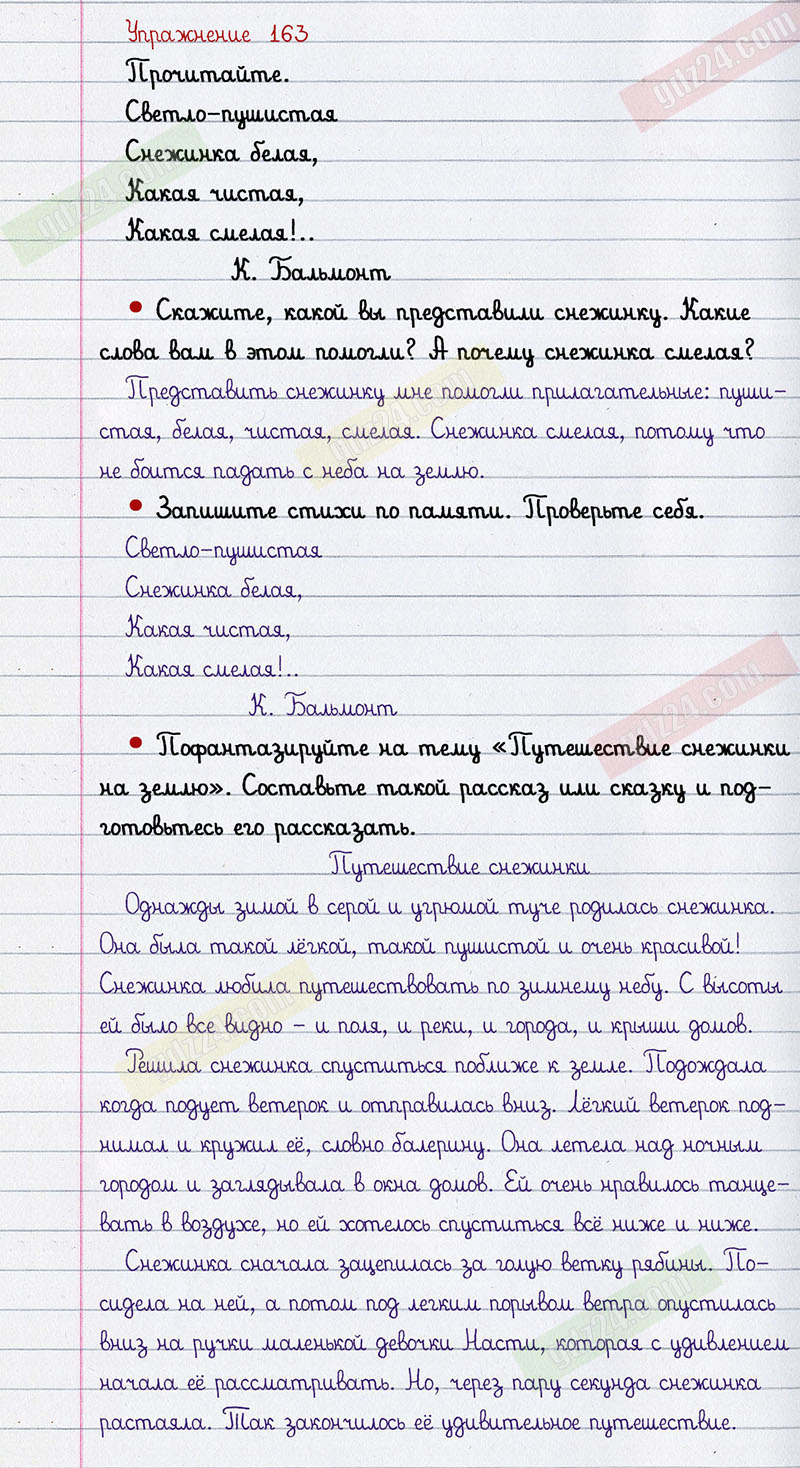 Упражнение 163
Прочитайте.
Светло-пушистая
Снежинка белая,
Какая чистая,
Какая смелая!..
К. Бальмонт
• Скажите, какой вы представили снежинку. Какие
слова вам в этом помогли? А почему снежинка смелая?
Представить снежинку мне помогли прилагательные: пуши-
стая, белая, чистая, смелая. Снежинка смелая, потому что
не боится падать с неба на землю.
• Запишите стихи по памяти. Проверьте себя.
Светло-пушистая
Снежинка белая,
Какая чистая,
Какая смелая!..
К. Бальмонт
• Пофантазируйте на тему «Путешествие снежинки
на землю». Составьте такой рассказ или сказку и под-
готовьтесь его рассказать.
Путешествие снежинки
Однажды зимой в серой и угрюмой туче родилась снежинка.
Она была такой лёгкой, такой пушистой и очень красивой!
Снежинка любила путешествовать по зимнему небу. С высоты
ей было все видно – и поля, и реки, и города, и крыши домов.
Решила снежинка спуститься поближе к земле. Подождала
когда подует ветерок и отправилась вниз. Лёгкий ветерок под-
нимал и кружил её, словно балерину. Она летела над ночным
городом и заглядывала в окна домов. Ей очень нравилось танце-
вать в воздухе, но ей хотелось спуститься всё ниже и ниже.
Снежинка сначала зацепилась за голую ветку рябины. По-
сидела на ней, а потом под легким порывом ветра опустилась
вниз на ручки маленькой девочки Насти, которая с удивлением
начала её рассматривать. Но, через пару секунда снежинка
растаяла. Так закончилось её удивительное путешествие.
gdz24.com
gdz24.com
gdz24.com
gdz24.com
gdz24.com
gdz24.com